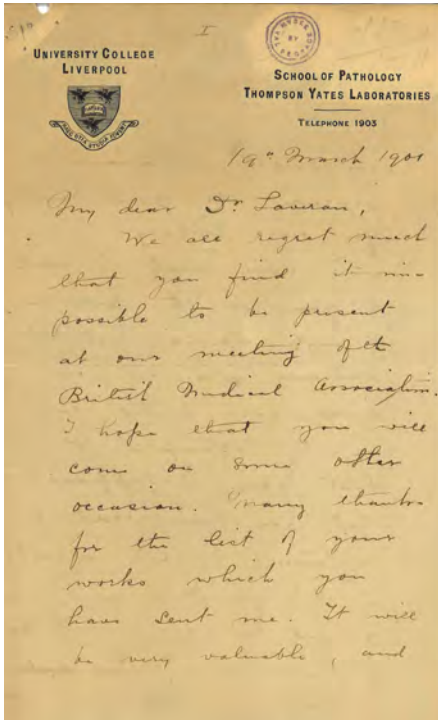 I
UNIVERSITY COLLEGE
LIVERPOOL
SCHOOL OF PATHOLOGY
THOMPSON YATES LABORATORIES
TELEPHONE 1903
19th March 1901
My dear Dr Laveran,
We all regret much
that you find it im-
possible to be present
at our meeting of the
British Medical Association.
I hope that you will
come on some other
occasion. Many thanks
for the list of your
works which you
have sent me. It will
be very valuable, and